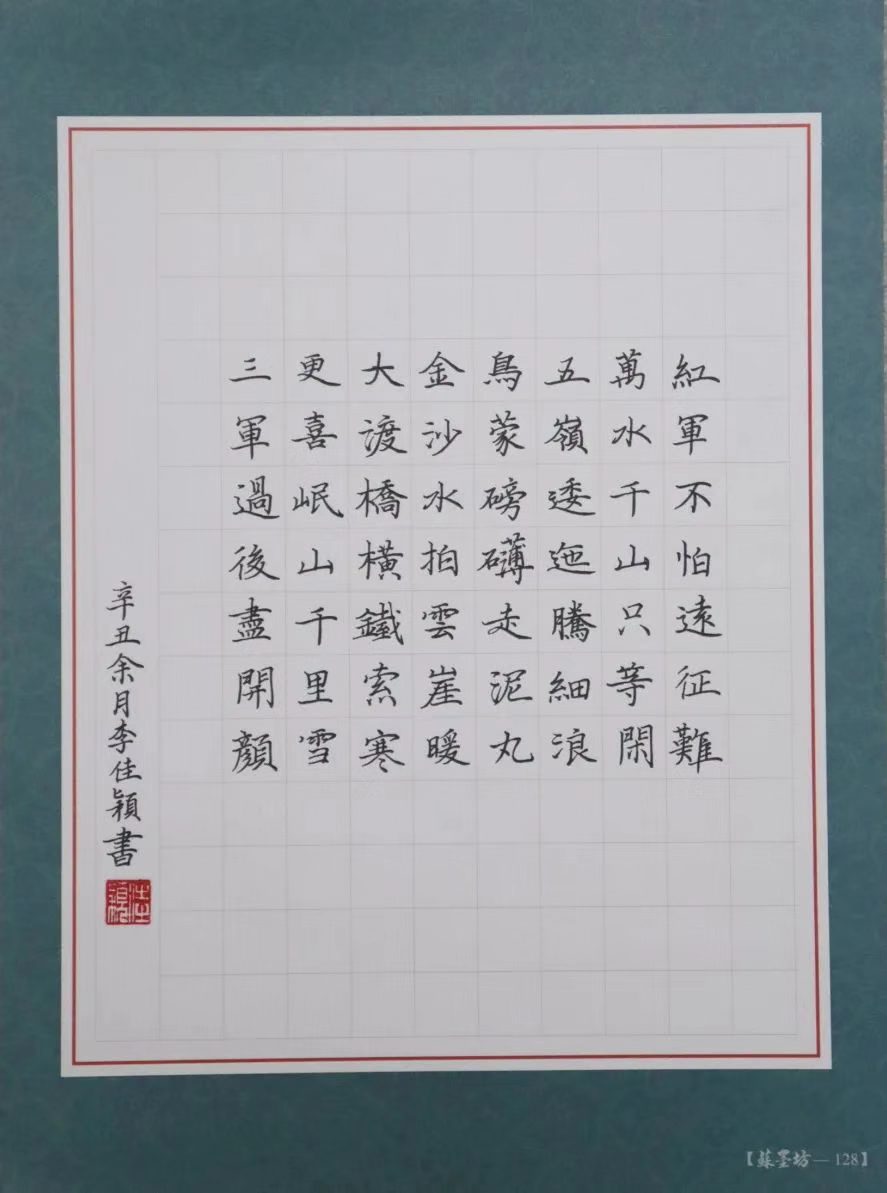 紅軍不怕遠征難
萬水千山只等閑
五嶺逶迤騰細浪
鳥蒙磅礴走泥丸
金沙水拍雲崖暖
大渡橋橫鐵索寒
更喜岷山千里雪
三軍過後盡開顏
辛丑余月李佳穎書
【蘇墨坊—128】